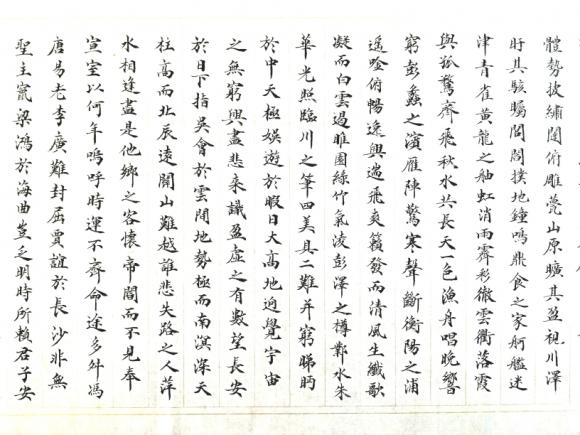 體勢披繡闥俯雕甍山原曠其盈視川澤
盱其駭矚閭閻撲地鐘鳴鼎食之家舸艦迷
津青雀黃龍之舳虹消雨霽彩徹雲衢落霞
與孤鶩齊飛秋水共長天一色漁舟唱晚響
窮彭蠡之濱雁陣驚寒聲斷衡陽之浦
遙吟俯暢逸興遄飛爽籟發而清風生纖歌
凝而白雲遏睢園綠竹氣凌彭澤之樽鄴水朱
華光照臨川之筆四美具二難并窮睇眄
於中天極娛遊於暇日天高地迥覺宇宙
之無窮興盡悲来識盈虛之有數望長安
於日下指吳會於雲間地勢極而南溟深天
柱高而北辰遠關山難越誰悲失路之人萍
水相逢盡是他鄉之客懷帝閽而不見奉
宣室以何年嗚呼時運不齊命途多舛馮
唐易老李廣難封屈賈誼於長沙非無
聖主竄梁鴻於海曲豈乏明時所賴君子安